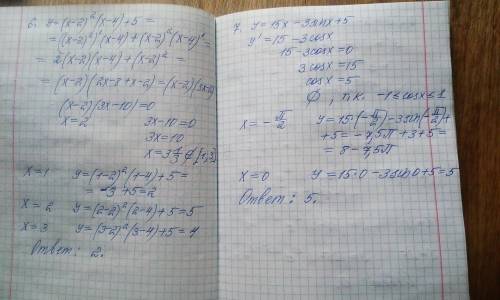 6. y=(x-2)²(x-4)+5 =
= ((x-2)²)'(x-4)+(x-2)²(x-4)' =
= 2(x-2)(x-4)+(x-2)² =
= (x-2)(2x-8+x-2)=(x-2)(3x-10)
(x-2)(3x-10)=0
x=2 3x-10=0
3x=10
x=3 1/3 ∉ [1;3]
x=1 y=(1-2)²(1-4)+5=
= -3+5=2
x=2 y=(2-2)²(2-4)+5=5
x=3 y=(3-2)²(3-4)+5=4
Ответ: 2.
7. y=15x-3sinx+5
y'=15-3cosx
15-3cosx=0
3cosx=15
cosx=5
∅, т.к. -1≤cosx≤1
x=-π/2 y=15·(-π/2)-3sin(-π/2)+
+5=-7,5π+3+5=
= 8-7,5π
x=0 y=15·0-3sin0+5=5
Ответ: 5.